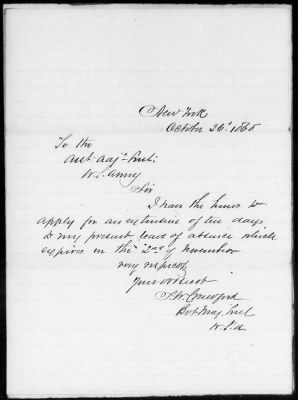 New York
October 26th 1865
To the
Asst. Adjt. Genl.
U.S. Army
Sir
I have the honor to
apply for an extension of ten days
to my present leave of absence which
expires on the 2nd of November
Very respect
Your obt Servt
S.W. Crawford
Bvt Maj. Genl
U.S.A